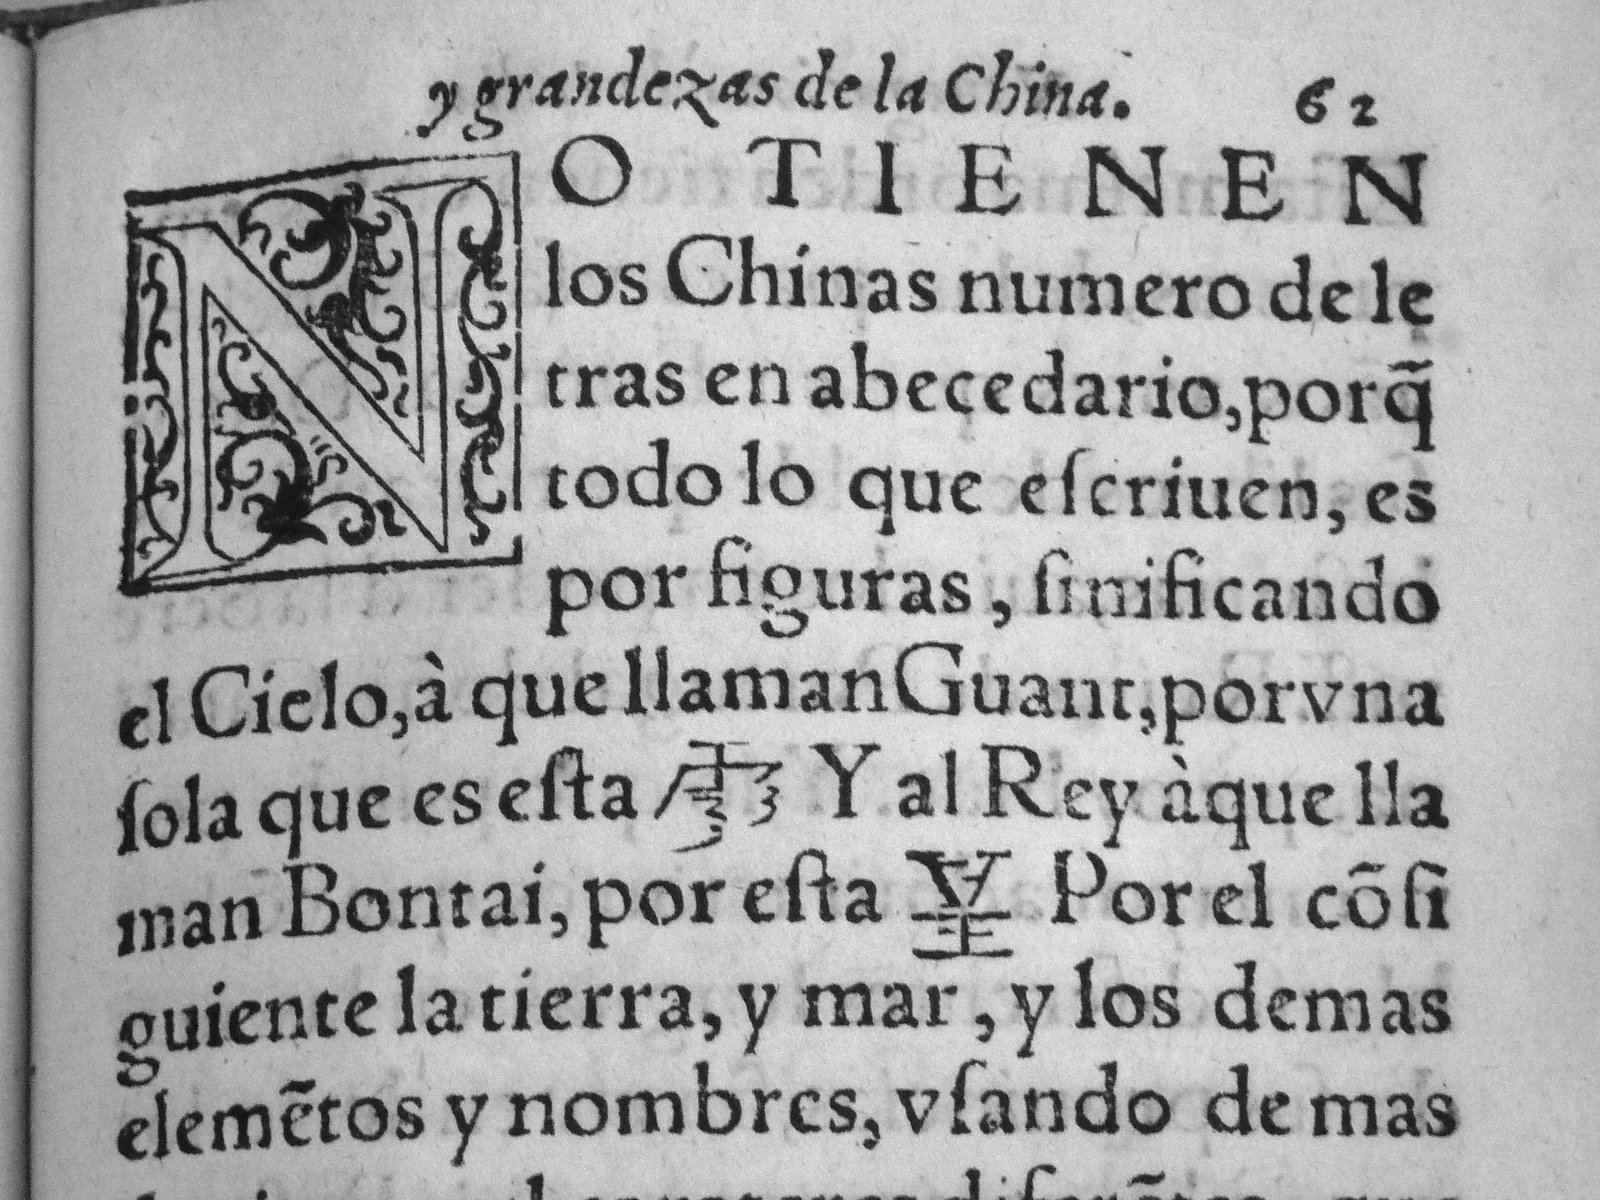 y grandezas de la China. 62
NO TIENEN
los Chinas numero de le
tras en abecedario, porq̃
todo lo que eſcriuen, es
por figuras, ſinificando
el Cielo, à que llaman Guant, por vna
ſola que es eſta Y al Rey à que lla
man Bontai, por eſta Por el cõſi
guiente la tierra, y mar, y los demas
elemẽtos y nombres, vſando de mas